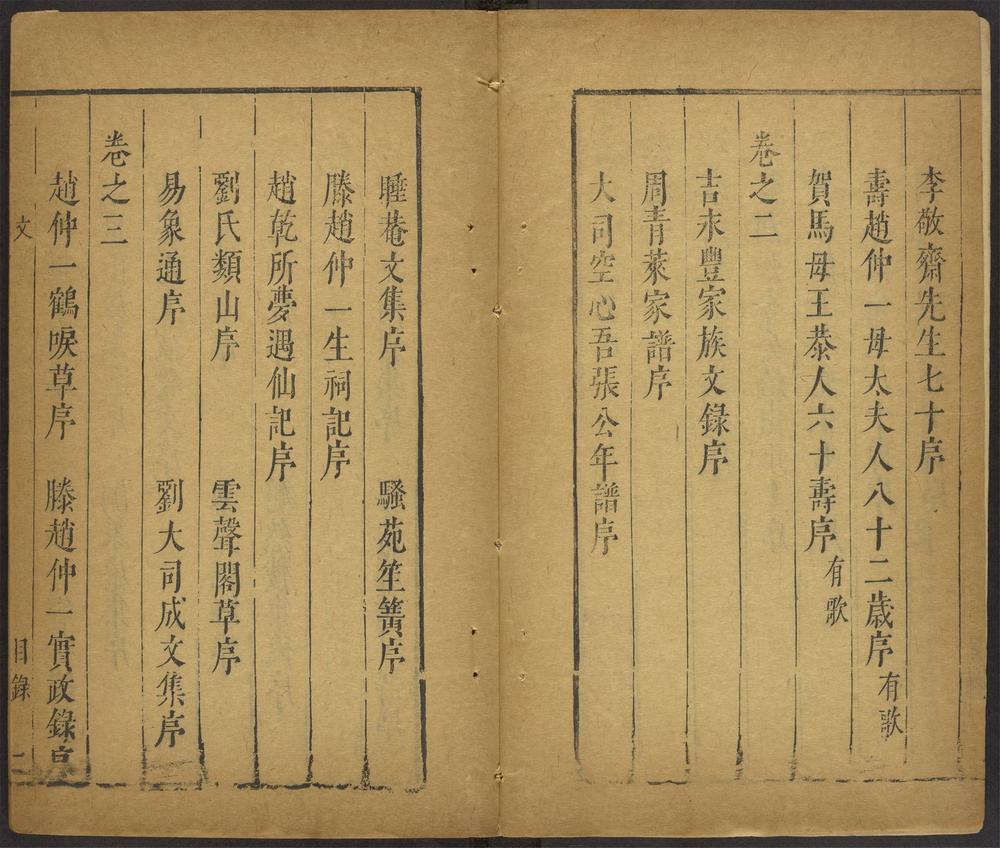 李敬齋先生七十序
壽趙仲一母太夫人八十二歲序有歌
賀馬母王恭人六十壽序有歌
卷之二
吉永豐家族文錄序
周青萊家譜序
大司空心吾張公年譜序
睡菴文集序 騷苑笙簧序
滕趙仲一生祠記序
趙乾所夢遇仙記序
劉氏類山序 雲聲閣草序
易象通序 劉大司成文集序
卷之三
趙仲一鶴唳草序 滕趙仲一實政錄序
文 目錄 二